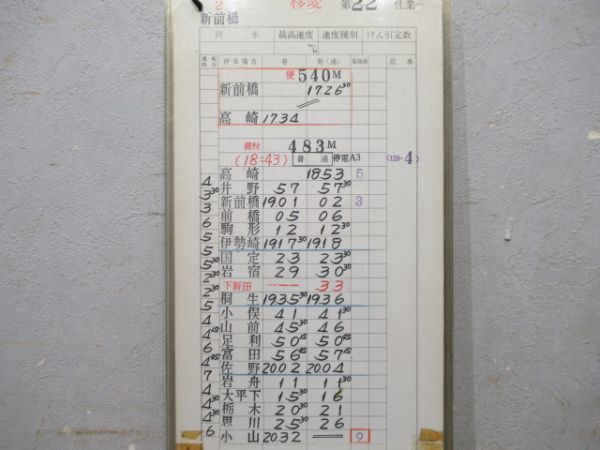 2 移変 第22仕業
新前橋
列車 最高速度 速度種別 けん引定数
停車場名 着 発(通) 記事
便 540M
新前橋 1726 30
高崎 1734
据付 483M
(18:43) 普通 停電A3 (118-4)
高崎 1853 5
4 井野 57 57 30
3 30 新前橋 1901 02 3
3 前橋 05 06
6 駒形 12 12 30
5 伊勢崎 1917 30 1918
5 国定 23 23 30
5 30 岩宿 29 30 30
2 30 下新田 --- 33
2 30 桐生 1935 30 1936
5 小俣 41 41 30
4 山前 45 30 46
4 15 足利 50 15 50 45
6 富田 56 45 57 15
4 45 佐野 2002 2004
7 岩舟 11 11 30
4 大平下 15 30 16
4 30 栃木 20 30 21
4 30 思川 25 30 26
6 小山 2032 9